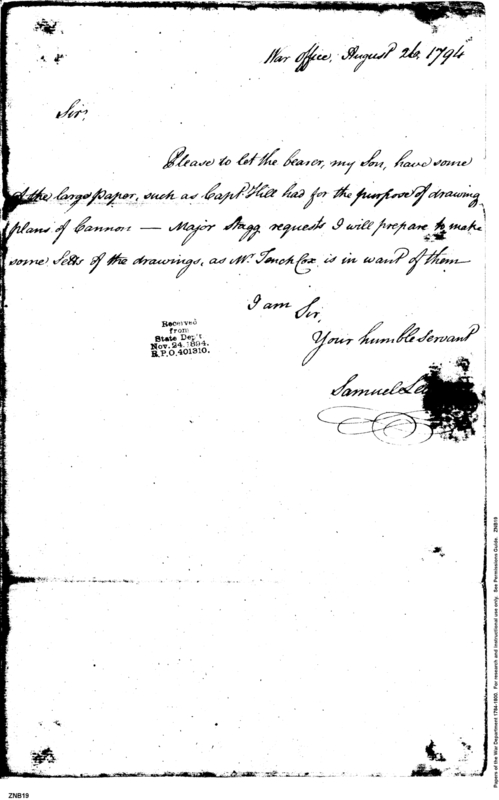 War office, August 26, 1794
Sir,
Please to let the bearer, my Son, have some
of the large Paper, such as Capt Hill had for the purpose of drawing
plans of Cannon — Major Stagg requests I will prepare to make
some Setts of the drawings, as Mr. Tench Cox is in want of them
I am Sir,
Your humble Servant
Samuel
Received
from
State Dep't
Nov. 24, 1894.
R.P.O. 401310.
Papers of the War Department 1784-1800. For research and instructional use only. See Permissions Guide. ZNB19
ZNB19